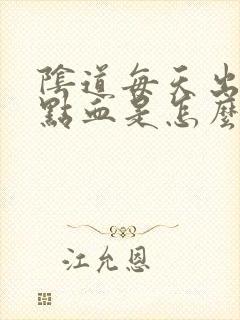 陰道每天出
點血是怎麼
江允恩